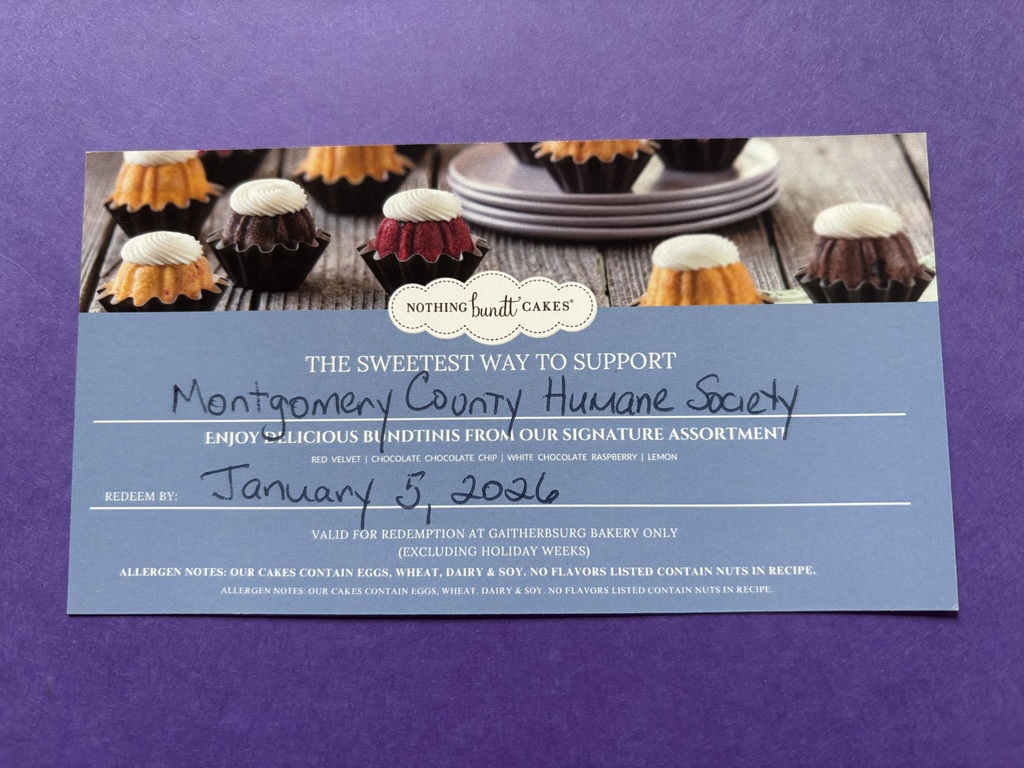 NOTHING bundt CAKES®
THE SWEETEST WAY TO SUPPORT
Montgomery County Humane Society
ENJOY DELICIOUS BUNDTINIS FROM OUR SIGNATURE ASSORTMENT
RED VELVET | CHOCOLATE CHOCOLATE CHIP | WHITE CHOCOLATE RASPBERRY | LEMON
REDEEM BY: January 5, 2026
VALID FOR REDEMPTION AT GAITHERBSURG BAKERY ONLY
(EXCLUDING HOLIDAY WEEKS)
ALLERGEN NOTES: OUR CAKES CONTAIN EGGS, WHEAT, DAIRY & SOY. NO FLAVORS LISTED CONTAIN NUTS IN RECIPE.
ALLERGEN NOTES: OUR CAKES CONTAIN EGGS, WHEAT, DAIRY & SOY. NO FLAVORS LISTED CONTAIN NUTS IN RECIPE.